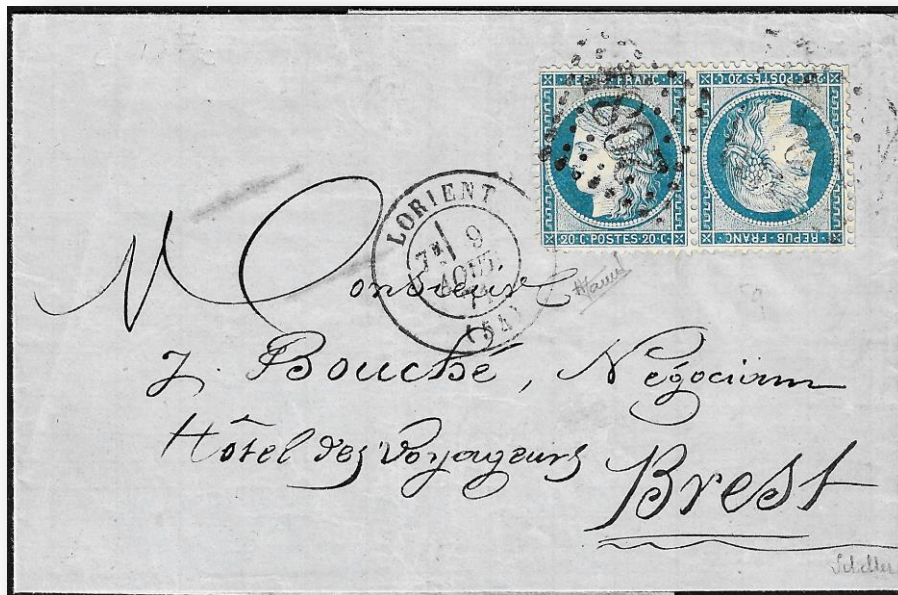 REPUB. FRANC.
20·C·POSTES·20·C
20·C·POSTES·20·C
REPUB. FRANC.
LORIENT
7E
9
AOUT
71
(54)
Monsieur
J. Bouché, Négociant
Hôtel des Voyageurs
Brest